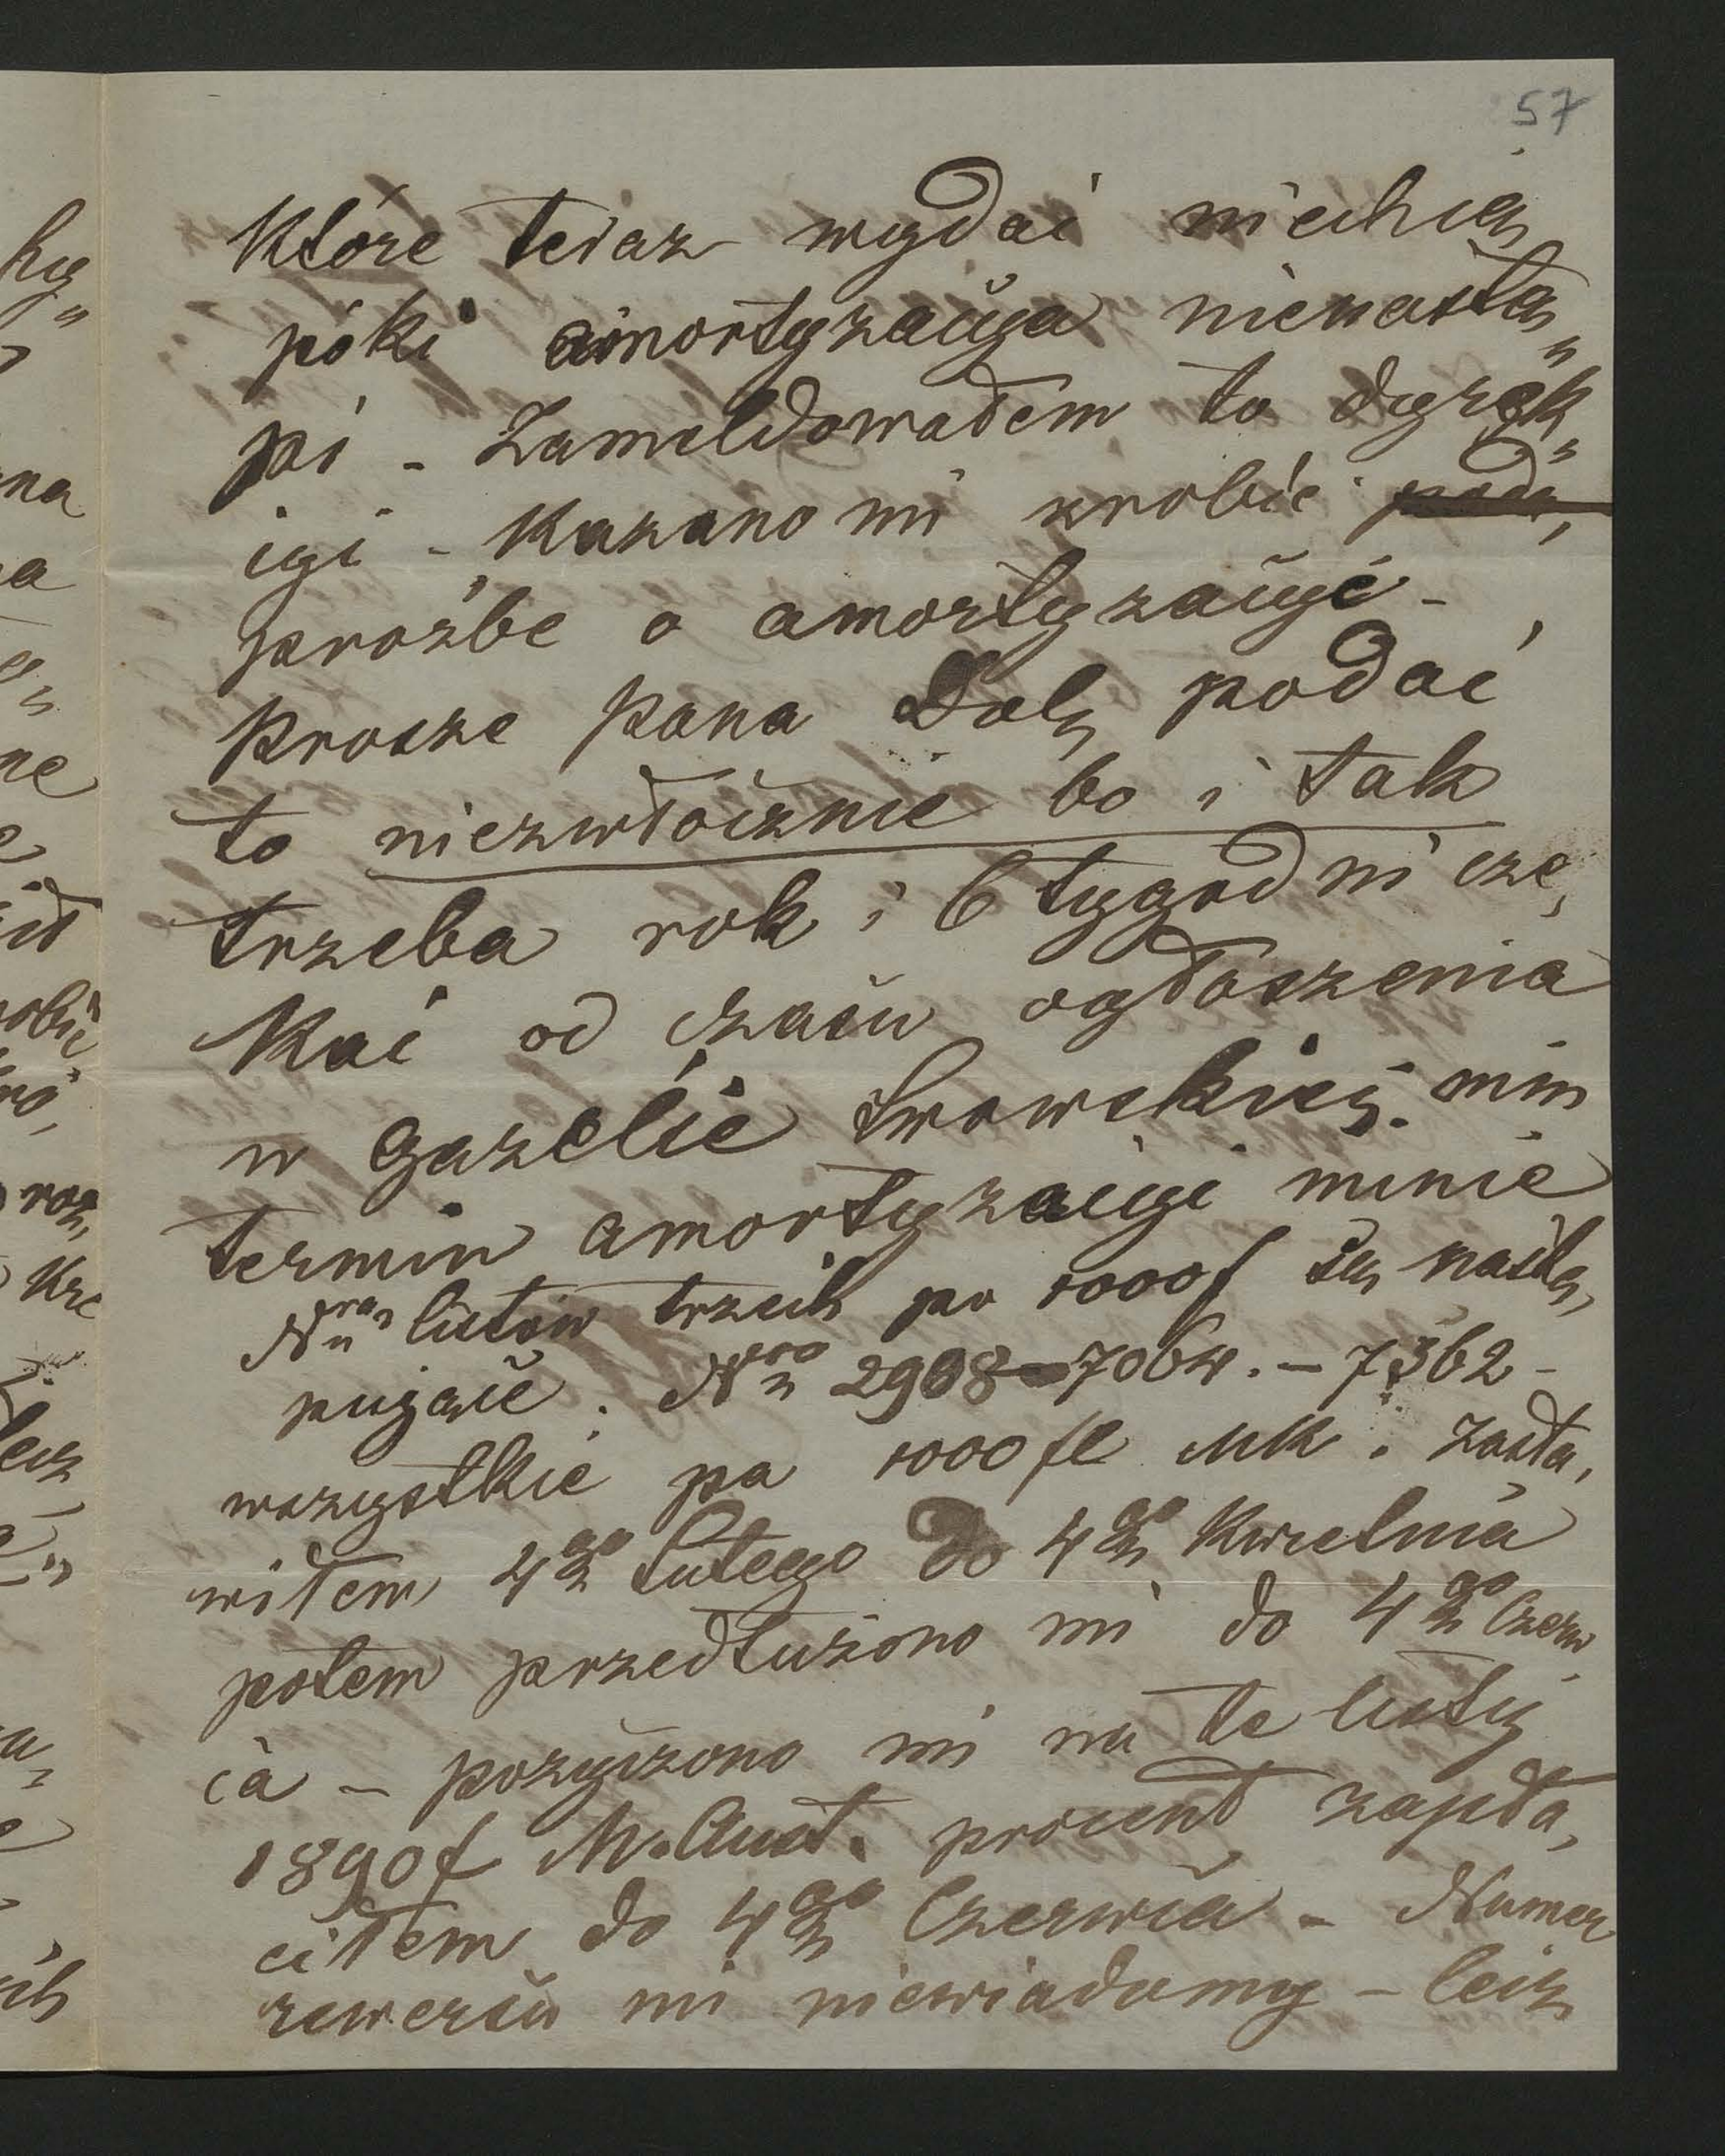 57
które teraz wydać niechcą
póki amortyzacya nienastą„
pi - Zameldowałem to dyrek„
cyi - Kazano mi zrobić poda,
prozbe o amortyzacyę -
Prosze Pana podać
to niezwłocznie bo i tak
trzeba rok i 6 tygodni cze,
kać od czasu ogłoszenia
w gazecie Lwowskiej. nim
termin amortyzacyi minie
Nra listów trzech po 1000f są nastę,
pujące. Nro 2908 - 7064. - 7362 -
wszystkie po 1000 fl MK. Zasta,
wiłem 4go Lutego do 4go Kwietnia
potem przedłużono mi do 4go Czerw,
ca - pozyczono mi na te listy
1890f W. Aust. procent zapła,
ciłem do 4go Czerwca - Numer
rewersu mi niewiadomy - lecz